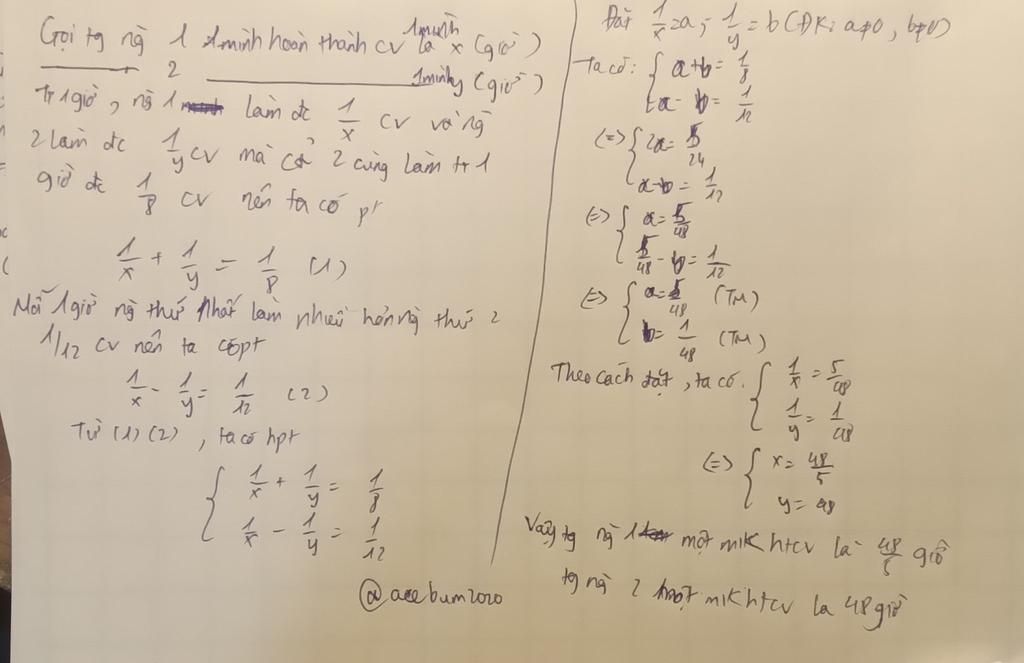 Gọi tg ng̀ 1 1 mình hoàn thành cv là x (giờ)
1 mình
2 1 mình y (giờ)
Tr 1 giờ, ng̀ 1 làm đc 1/x cv và ng̀
2 làm đc 1/y cv mà cả 2 cùng làm tr 1
giờ đc 1/8 cv nên ta có pt
1/x + 1/y = 1/8 (1)
Mỗi 1 giờ ng̀ thứ nhất làm nhiều hơn ng̀ thứ 2
1/12 cv nên ta có pt
1/x - 1/y = 1/12 (2)
Từ (1) (2), ta có hpt
{ 1/x + 1/y = 1/8
1/x - 1/y = 1/12
@acebum2020
Đặt 1/x = a; 1/y = b (ĐK: a≠0, b≠0)
Ta có: { a+b = 1/8
a - b = 1/12
(=) { 2a = 5/24
a-b = 1/12
(=) { a = 5/48
5/48 - b = 1/12
(=) { a = 5/48 (TM)
b = 1/48 (TM)
Theo cách đặt, ta có. { 1/x = 5/48
1/y = 1/48
(=) { x = 48/5
y = 48
Vậy tg ng̀ 1 một mik htcv là 48/5 giờ
tg ng̀ 2 một mik htcv la 48 giờ